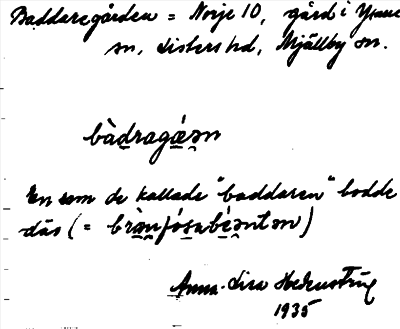 Baddaregården = Norje 10, gård i Ysane
sn, Listers hd, Mjällby sn.
bàdragǽən
En som de kallade "baddaren" bodde
där (= brànfósabéəntən)
Anna-Lisa Hedenstrug
1935